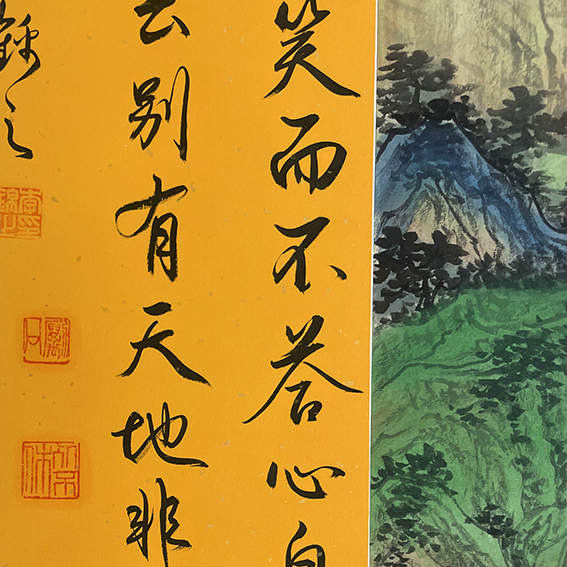 笑而不答心自
去别有天地非
錦之